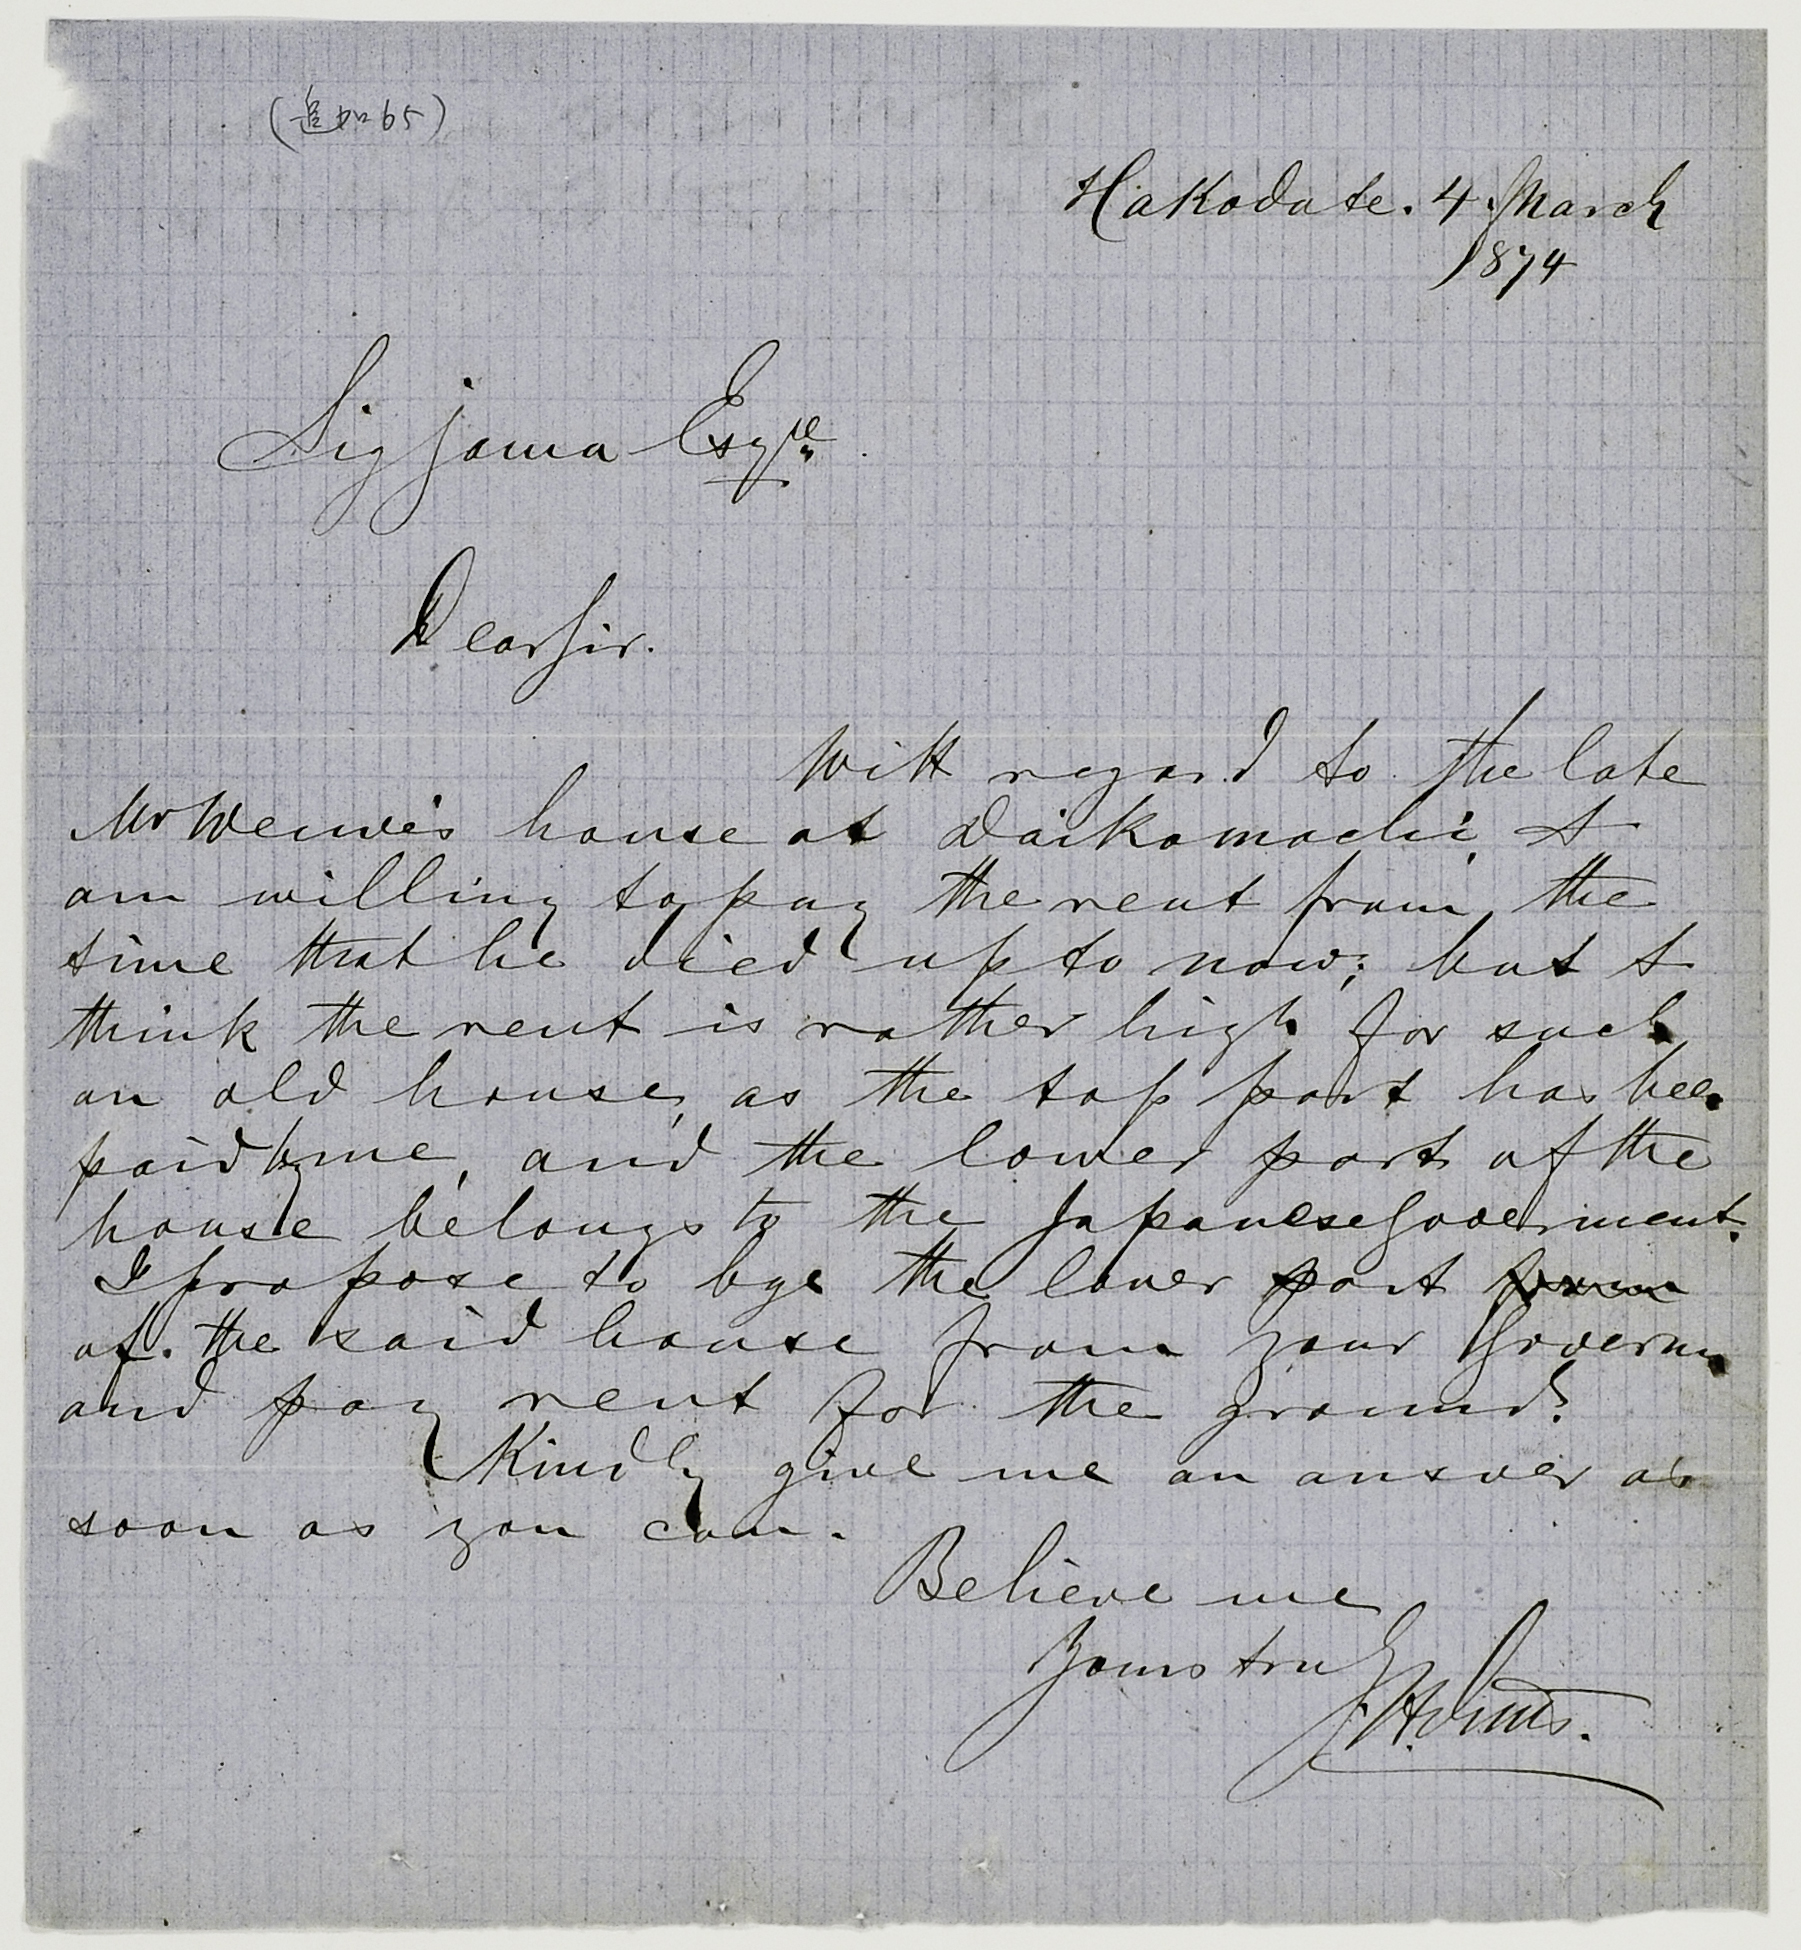 (追加65)
Hakodate. 4 March
1874
Sigjama Esqre
Dear Sir.
With regard to the late
Mr house at Daikomachi, I
am willing to pay the rent from the
time that he died up to now; but I
think the rent is rather high for such
an old house, as the top part has been
paid by me, and the lower part of the
house belongs to the Japanese Goverment.
I propose to bye the lower part
of. the said house from your Governm
and pay rent for the ground?
Kindly give me an answer as
soon as you can.
Believe me
Yours truly
J. H.